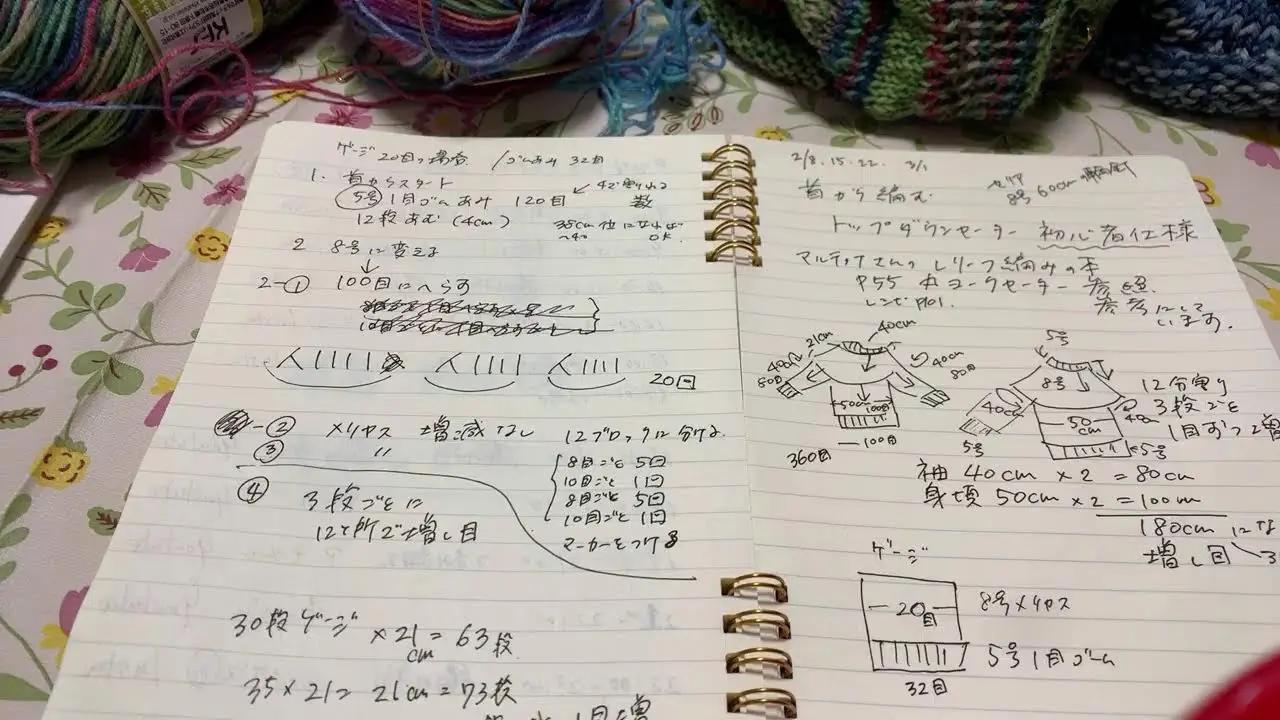 ゲージ20目の場合 / ゴムあみ 32目
1. 首からスタート
5号 1目ゴムあみ 120目 ← 4で割れる数
12段あむ (4cm)
35cm位になれば
〜40 OK.
2 8号に変える
↓
2-① 100目にへらす
20回
-② メリヤス 増減なし
③ 〃
12ブロックに分ける
8目ごと 5回
10目ごと 1回
8目ごと 5回
10目ごと 1回
マーカーをつける
④ 3段ごとに
12ヶ所で増し目
30段ゲージ ×21cm = 63段
35×21= 21cm=73段
1目増
2/8.15.22. 3/1
首から編む
セリア
8号 60cm
トップダウンセーター 初心者仕様
マルティナさんの レリーフ編みの本
P55 丸ヨークセーター 参照
レシピ P101.
参考にして
います。
40cm
21cm
40cm
80目
40cm
80目
50cm
100目
100目
360目
5号
8号
40cm
40cm
50cm
5号
5号
12分割
3段ごと
1目ずつ増
袖 40cm ×2 = 80cm
身頃 50cm ×2 = 100cm
180cm にな
増し目
ゲージ
20目
8号メリヤス
5号1目ゴム
32目